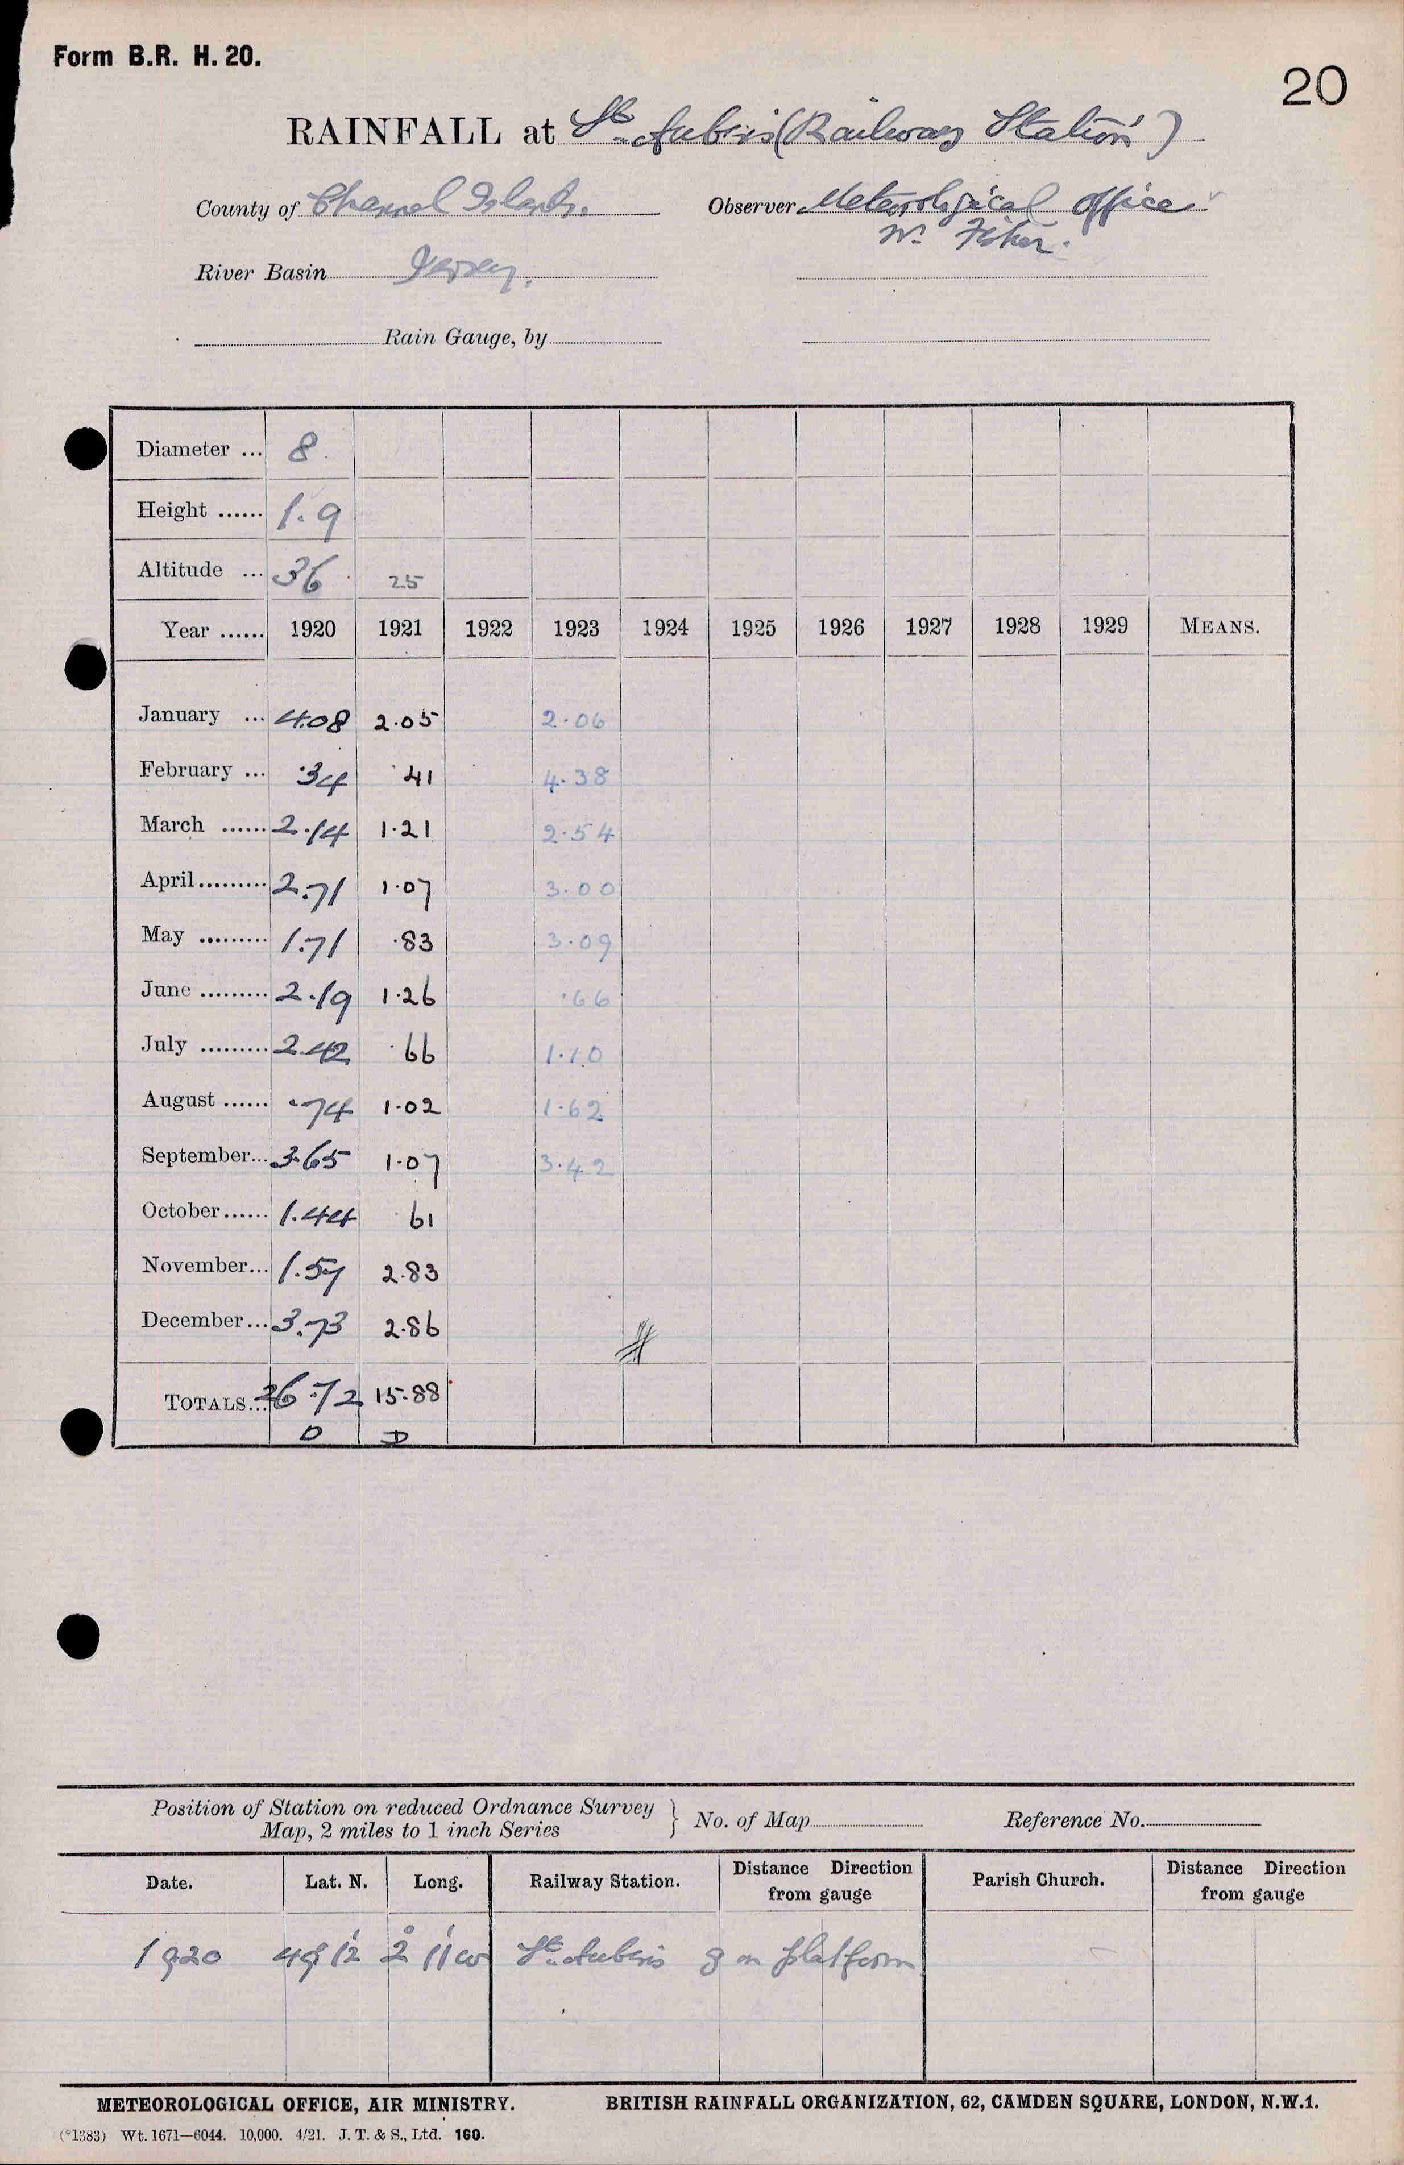 Form B.R. H. 20.
20
RAINFALL at St. Aubins (Railway Station)
County of Channel Islands. Observer Meteorological Office
W. Fisher.
River Basin Jersey.
Rain Gauge, by
Diameter ... 8
Height ...... 1.9
Altitude ... 36 25
Year ...... 1920 1921 1922 1923 1924 1925 1926 1927 1928 1929 MEANS.
January ... 4.08 2.05 2.06
February ... .34 .41 4.38
March ...... 2.14 1.21 2.54
April ......... 2.71 1.07 3.00
May ......... 1.71 .83 3.09
June ......... 2.19 1.26 .66
July ......... 2.42 .66 1.10
August ...... .74 1.02 1.62
September... 3.65 1.07 3.42
October ...... 1.44 61
November... 1.57 2.83
December... 3.73 2.86
TOTALS... 26.72 15.88
D D
Position of Station on reduced Ordnance Survey
Map, 2 miles to 1 inch Series } No. of Map Reference No.
Date. Lat. N. Long. Railway Station. Distance Direction from gauge Parish Church. Distance Direction from gauge
1920 49° 12' 2° 11' W St. Aubins g on platform
METEOROLOGICAL OFFICE, AIR MINISTRY. BRITISH RAINFALL ORGANIZATION, 62, CAMDEN SQUARE, LONDON, N.W.1.
(*1383) Wt. 1671—6044. 10,000. 4/21. J. T. & S., Ltd. 160.